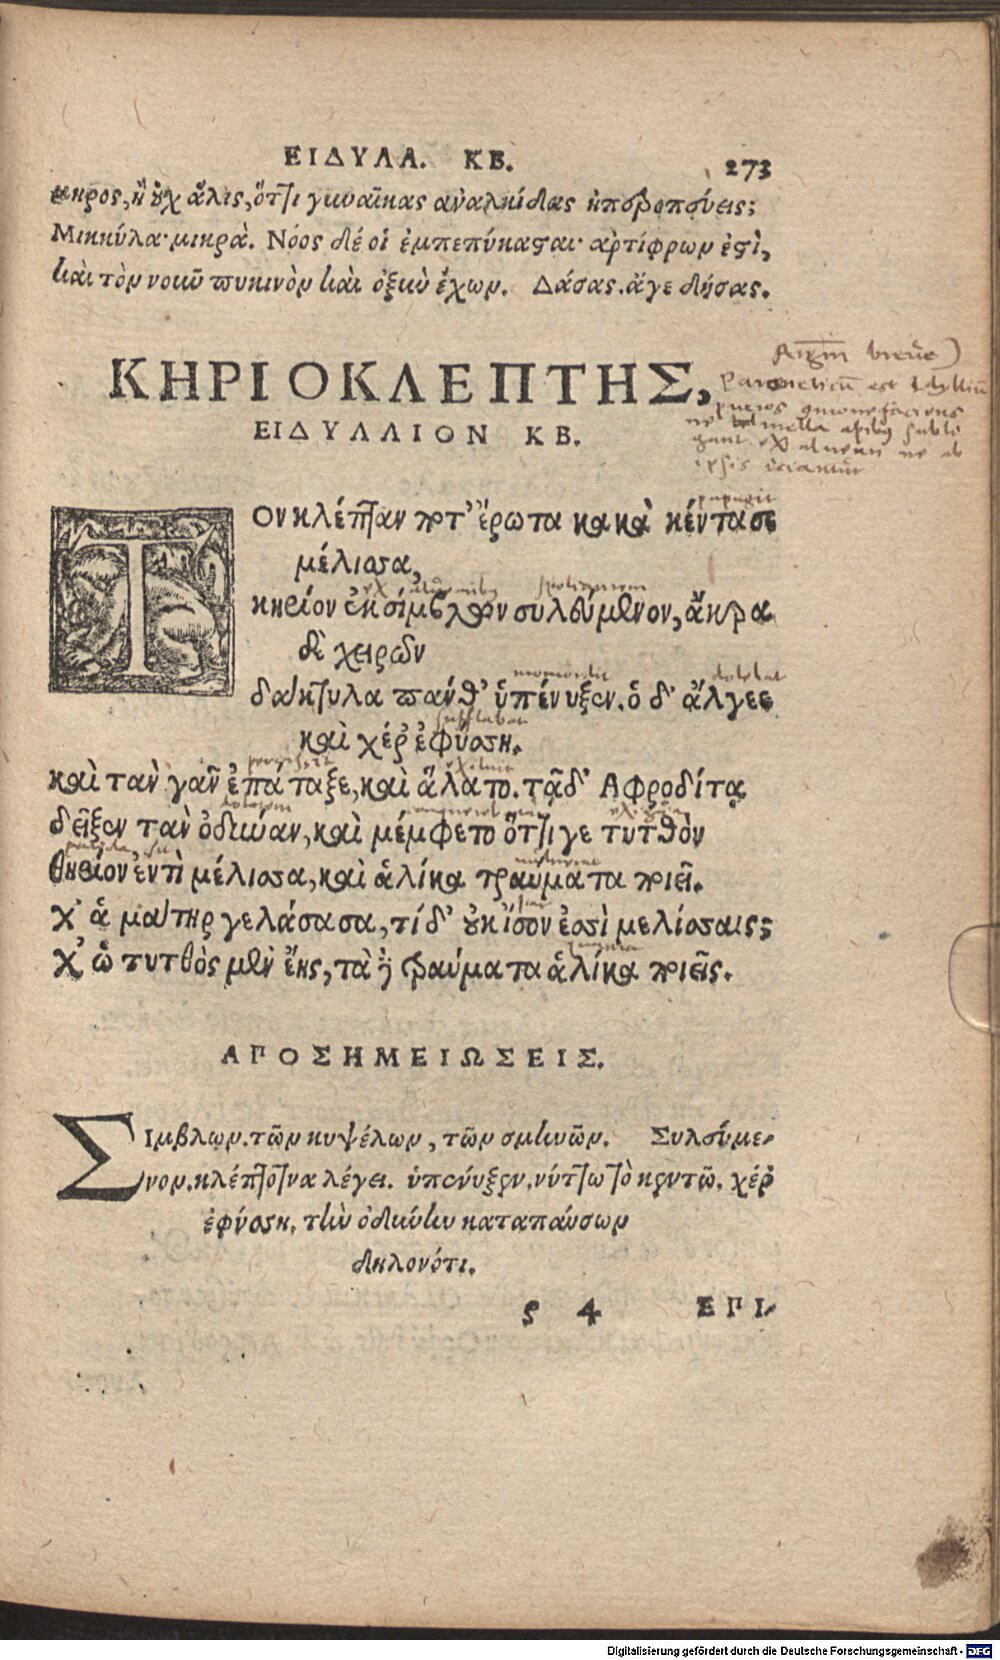 ΕΙΔΥΛΑ. ΚΒ. 273
μηρος, ἢ οὐχ ἅλις, ὅττι γυναῖκας ἀνάλκιδας ἠπεροπεύεις;
Μικκύλα· μικρὰ. Νόος δέ οἱ ἐμπεπύκασαι· ἀρτίφρων ἐστὶ,
καὶ τὸν νοιοῦ πυκινὸν καὶ ὀξὺν ἔχων. Δάσας. ἄγε δήσας.
ΚΗΡΙΟΚΛΕΠΤΗΣ,
ΕΙΔΥΛΛΙΟΝ ΚΒ.
breve)
est Idyllium
pueros
ne mella apibus
ne ab
ipsis
ΤΟΝ κλέπταν ποτ' ἔρωτα κακὰ κέντασε
μέλισσα,
κηρίον ἐκ σίμβλων συλούμενον, ἄκρα
δὲ χειρῶν
momordit dolebat
δάκτυλα πάνθ' ὑπένυξεν. ὁ δ' ἄλγεε
καὶ χέρ' ἐφύσση.
καὶ τὰν γᾶν ἐπάταξε, καὶ ἅλατο. τᾷ δ' Ἀφροδίτᾳ
dolorem
δεῖξεν τὰν ὀδύναν, καὶ μέμφετο ὅττι γε τυτθὸν
θηρίον ἐντὶ μέλισσα, καὶ ἁλίκα τραύματα ποιεῖ.
χ' ἁ μάτηρ γελάσασα, τί δ' οὐκ ἴσον ἐσσὶ μελίσσαις;
χ' ὢ τυτθὸς μὲν ἔῃς, τὰ δὲ τραύματα ἁλίκα ποιεῖς.
ΑΠΟΣΗΜΕΙΩΣΕΙΣ.
ΣΙμβλων. τῶν κυψέλων, τῶν σμηνῶν. Συλούμε-
νον. κλέπτοντα λέγει. ὑπένυξεν. νύττω τὸ κεντῶ. χέρ'
ἐφύσση, τὴν ὀδύνην καταπαύσων
δηλονότι.
ς 4 ΕΠΙ-
Digitalisierung gefördert durch die Deutsche Forschungsgemeinschaft - DFG